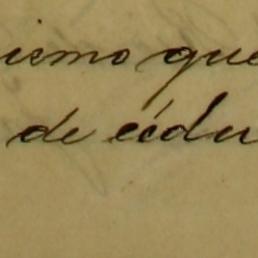 ismo que
de cédu